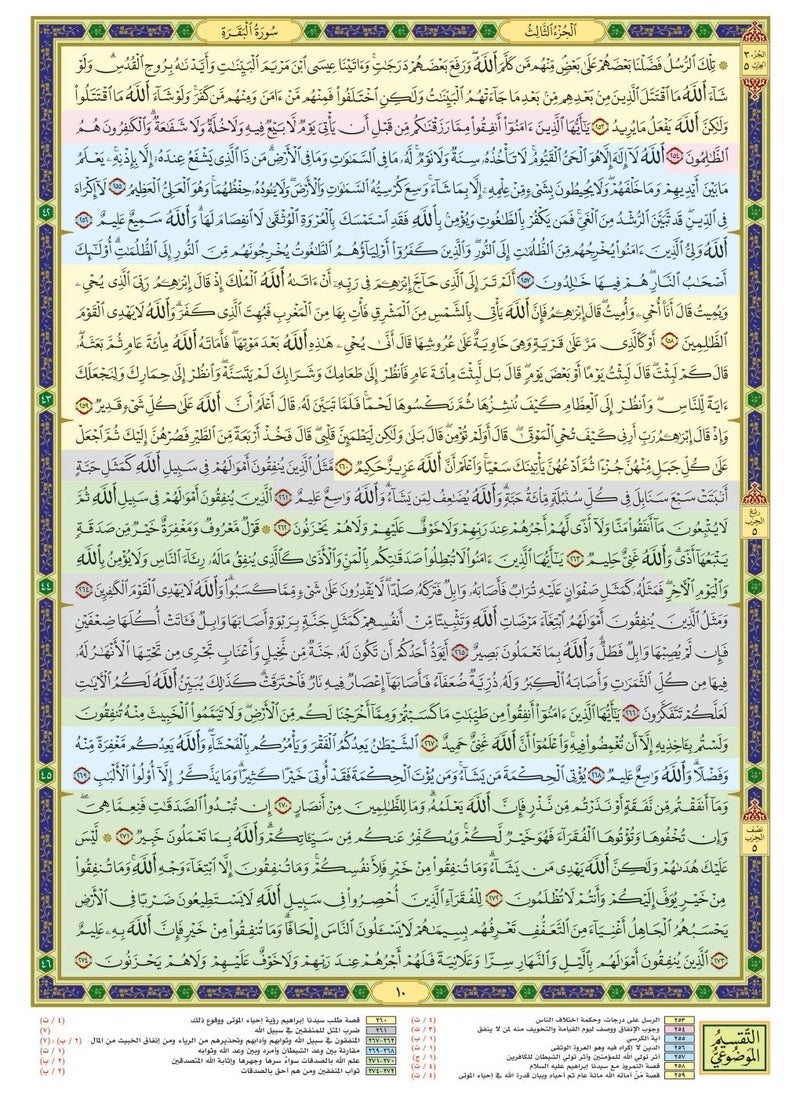 الجُزْءُ الثَّالِثُ
سُورَةُ الْبَقَرَةِ
الجزء ٣
الحزب ٥
۞ تِلْكَ الرُّسُلُ فَضَّلْنَا بَعْضَهُمْ عَلَىٰ بَعْضٍ مِّنْهُم مَّن كَلَّمَ اللَّهُ وَرَفَعَ بَعْضَهُمْ دَرَجَاتٍ وَءَاتَيْنَا عِيسَى ابْنَ مَرْيَمَ الْبَيِّنَاتِ وَأَيَّدْنَاهُ بِرُوحِ الْقُدُسِ وَلَوْ
شَاءَ اللَّهُ مَا اقْتَتَلَ الَّذِينَ مِن بَعْدِهِم مِّن بَعْدِ مَا جَاءَتْهُمُ الْبَيِّنَاتُ وَلَٰكِنِ اخْتَلَفُوا فَمِنْهُم مَّنْ ءَامَنَ وَمِنْهُم مَّن كَفَرَ وَلَوْ شَاءَ اللَّهُ مَا اقْتَتَلُوا
وَلَٰكِنَّ اللَّهَ يَفْعَلُ مَا يُرِيدُ ٢٥٣ يَٰأَيُّهَا الَّذِينَ ءَامَنُوا أَنفِقُوا مِمَّا رَزَقْنَاكُم مِّن قَبْلِ أَن يَأْتِيَ يَوْمٌ لَّا بَيْعٌ فِيهِ وَلَا خُلَّةٌ وَلَا شَفَاعَةٌ وَالْكَافِرُونَ هُمُ
الظَّالِمُونَ ٢٥٤ اللَّهُ لَا إِلَٰهَ إِلَّا هُوَ الْحَيُّ الْقَيُّومُ لَا تَأْخُذُهُ سِنَةٌ وَلَا نَوْمٌ لَّهُ مَا فِي السَّمَاوَاتِ وَمَا فِي الْأَرْضِ مَن ذَا الَّذِي يَشْفَعُ عِندَهُ إِلَّا بِإِذْنِهِ يَعْلَمُ
مَا بَيْنَ أَيْدِيهِمْ وَمَا خَلْفَهُمْ وَلَا يُحِيطُونَ بِشَيْءٍ مِّنْ عِلْمِهِ إِلَّا بِمَا شَاءَ وَسِعَ كُرْسِيُّهُ السَّمَاوَاتِ وَالْأَرْضَ وَلَا يَئُودُهُ حِفْظُهُمَا وَهُوَ الْعَلِيُّ الْعَظِيمُ ٢٥٥ لَا إِكْرَاهَ
فِي الدِّينِ قَد تَّبَيَّنَ الرُّشْدُ مِنَ الْغَيِّ فَمَن يَكْفُرْ بِالطَّاغُوتِ وَيُؤْمِن بِاللَّهِ فَقَدِ اسْتَمْسَكَ بِالْعُرْوَةِ الْوُثْقَىٰ لَا انفِصَامَ لَهَا وَاللَّهُ سَمِيعٌ عَلِيمٌ ٢٥٦
٤٢
اللَّهُ وَلِيُّ الَّذِينَ ءَامَنُوا يُخْرِجُهُم مِّنَ الظُّلُمَاتِ إِلَى النُّورِ وَالَّذِينَ كَفَرُوا أَوْلِيَاؤُهُمُ الطَّاغُوتُ يُخْرِجُونَهُم مِّنَ النُّورِ إِلَى الظُّلُمَاتِ أُولَٰئِكَ
أَصْحَابُ النَّارِ هُمْ فِيهَا خَالِدُونَ ٢٥٧ أَلَمْ تَرَ إِلَى الَّذِي حَاجَّ إِبْرَاهِيمَ فِي رَبِّهِ أَنْ ءَاتَاهُ اللَّهُ الْمُلْكَ إِذْ قَالَ إِبْرَاهِيمُ رَبِّيَ الَّذِي يُحْيِ
وَيُمِيتُ قَالَ أَنَا أُحْيِ وَأُمِيتُ قَالَ إِبْرَاهِيمُ فَإِنَّ اللَّهَ يَأْتِي بِالشَّمْسِ مِنَ الْمَشْرِقِ فَأْتِ بِهَا مِنَ الْمَغْرِبِ فَبُهِتَ الَّذِي كَفَرَ وَاللَّهُ لَا يَهْدِي الْقَوْمَ
الظَّالِمِينَ ٢٥٨ أَوْ كَالَّذِي مَرَّ عَلَىٰ قَرْيَةٍ وَهِيَ خَاوِيَةٌ عَلَىٰ عُرُوشِهَا قَالَ أَنَّىٰ يُحْيِ هَٰذِهِ اللَّهُ بَعْدَ مَوْتِهَا فَأَمَاتَهُ اللَّهُ مِائَةَ عَامٍ ثُمَّ بَعَثَهُ
قَالَ كَمْ لَبِثْتَ قَالَ لَبِثْتُ يَوْمًا أَوْ بَعْضَ يَوْمٍ قَالَ بَل لَّبِثْتَ مِائَةَ عَامٍ فَانظُرْ إِلَىٰ طَعَامِكَ وَشَرَابِكَ لَمْ يَتَسَنَّهْ وَانظُرْ إِلَىٰ حِمَارِكَ وَلِنَجْعَلَكَ
ءَايَةً لِّلنَّاسِ وَانظُرْ إِلَى الْعِظَامِ كَيْفَ نُنشِزُهَا ثُمَّ نَكْسُوهَا لَحْمًا فَلَمَّا تَبَيَّنَ لَهُ قَالَ أَعْلَمُ أَنَّ اللَّهَ عَلَىٰ كُلِّ شَيْءٍ قَدِيرٌ ٢٥٩
٤٣
وَإِذْ قَالَ إِبْرَاهِيمُ رَبِّ أَرِنِي كَيْفَ تُحْيِ الْمَوْتَىٰ قَالَ أَوَلَمْ تُؤْمِن قَالَ بَلَىٰ وَلَٰكِن لِّيَطْمَئِنَّ قَلْبِي قَالَ فَخُذْ أَرْبَعَةً مِّنَ الطَّيْرِ فَصُرْهُنَّ إِلَيْكَ ثُمَّ اجْعَلْ
عَلَىٰ كُلِّ جَبَلٍ مِّنْهُنَّ جُزْءًا ثُمَّ ادْعُهُنَّ يَأْتِينَكَ سَعْيًا وَاعْلَمْ أَنَّ اللَّهَ عَزِيزٌ حَكِيمٌ ٢٦٠ مَّثَلُ الَّذِينَ يُنفِقُونَ أَمْوَالَهُمْ فِي سَبِيلِ اللَّهِ كَمَثَلِ حَبَّةٍ
أَنبَتَتْ سَبْعَ سَنَابِلَ فِي كُلِّ سُنبُلَةٍ مِّائَةُ حَبَّةٍ وَاللَّهُ يُضَاعِفُ لِمَن يَشَاءُ وَاللَّهُ وَاسِعٌ عَلِيمٌ ٢٦١ الَّذِينَ يُنفِقُونَ أَمْوَالَهُمْ فِي سَبِيلِ اللَّهِ ثُمَّ
لَا يُتْبِعُونَ مَا أَنفَقُوا مَنًّا وَلَا أَذًى لَّهُمْ أَجْرُهُمْ عِندَ رَبِّهِمْ وَلَا خَوْفٌ عَلَيْهِمْ وَلَا هُمْ يَحْزَنُونَ ٢٦٢ ۞ قَوْلٌ مَّعْرُوفٌ وَمَغْفِرَةٌ خَيْرٌ مِّن صَدَقَةٍ
ربع
الحزب
٥
يَتْبَعُهَا أَذًى وَاللَّهُ غَنِيٌّ حَلِيمٌ ٢٦٣ يَٰأَيُّهَا الَّذِينَ ءَامَنُوا لَا تُبْطِلُوا صَدَقَاتِكُم بِالْمَنِّ وَالْأَذَىٰ كَالَّذِي يُنفِقُ مَالَهُ رِئَاءَ النَّاسِ وَلَا يُؤْمِنُ بِاللَّهِ
وَالْيَوْمِ الْآخِرِ فَمَثَلُهُ كَمَثَلِ صَفْوَانٍ عَلَيْهِ تُرَابٌ فَأَصَابَهُ وَابِلٌ فَتَرَكَهُ صَلْدًا لَّا يَقْدِرُونَ عَلَىٰ شَيْءٍ مِّمَّا كَسَبُوا وَاللَّهُ لَا يَهْدِي الْقَوْمَ الْكَافِرِينَ ٢٦٤
٤٤
وَمَثَلُ الَّذِينَ يُنفِقُونَ أَمْوَالَهُمُ ابْتِغَاءَ مَرْضَاتِ اللَّهِ وَتَثْبِيتًا مِّنْ أَنفُسِهِمْ كَمَثَلِ جَنَّةٍ بِرَبْوَةٍ أَصَابَهَا وَابِلٌ فَآتَتْ أُكُلَهَا ضِعْفَيْنِ
فَإِن لَّمْ يُصِبْهَا وَابِلٌ فَطَلٌّ وَاللَّهُ بِمَا تَعْمَلُونَ بَصِيرٌ ٢٦٥ أَيَوَدُّ أَحَدُكُمْ أَن تَكُونَ لَهُ جَنَّةٌ مِّن نَّخِيلٍ وَأَعْنَابٍ تَجْرِي مِن تَحْتِهَا الْأَنْهَارُ لَهُ
فِيهَا مِن كُلِّ الثَّمَرَاتِ وَأَصَابَهُ الْكِبَرُ وَلَهُ ذُرِّيَّةٌ ضُعَفَاءُ فَأَصَابَهَا إِعْصَارٌ فِيهِ نَارٌ فَاحْتَرَقَتْ كَذَٰلِكَ يُبَيِّنُ اللَّهُ لَكُمُ الْآيَاتِ
لَعَلَّكُمْ تَتَفَكَّرُونَ ٢٦٦ يَٰأَيُّهَا الَّذِينَ ءَامَنُوا أَنفِقُوا مِن طَيِّبَاتِ مَا كَسَبْتُمْ وَمِمَّا أَخْرَجْنَا لَكُم مِّنَ الْأَرْضِ وَلَا تَيَمَّمُوا الْخَبِيثَ مِنْهُ تُنفِقُونَ
وَلَسْتُم بِآخِذِيهِ إِلَّا أَن تُغْمِضُوا فِيهِ وَاعْلَمُوا أَنَّ اللَّهَ غَنِيٌّ حَمِيدٌ ٢٦٧ الشَّيْطَانُ يَعِدُكُمُ الْفَقْرَ وَيَأْمُرُكُم بِالْفَحْشَاءِ وَاللَّهُ يَعِدُكُم مَّغْفِرَةً مِّنْهُ
وَفَضْلًا وَاللَّهُ وَاسِعٌ عَلِيمٌ ٢٦٨ يُؤْتِي الْحِكْمَةَ مَن يَشَاءُ وَمَن يُؤْتَ الْحِكْمَةَ فَقَدْ أُوتِيَ خَيْرًا كَثِيرًا وَمَا يَذَّكَّرُ إِلَّا أُولُو الْأَلْبَابِ ٢٦٩
٤٥
وَمَا أَنفَقْتُم مِّن نَّفَقَةٍ أَوْ نَذَرْتُم مِّن نَّذْرٍ فَإِنَّ اللَّهَ يَعْلَمُهُ وَمَا لِلظَّالِمِينَ مِنْ أَنصَارٍ ٢٧٠ إِن تُبْدُوا الصَّدَقَاتِ فَنِعِمَّا هِيَ
وَإِن تُخْفُوهَا وَتُؤْتُوهَا الْفُقَرَاءَ فَهُوَ خَيْرٌ لَّكُمْ وَيُكَفِّرُ عَنكُم مِّن سَيِّئَاتِكُمْ وَاللَّهُ بِمَا تَعْمَلُونَ خَبِيرٌ ٢٧١ ۞ لَّيْسَ
نصف
الحزب
٥
عَلَيْكَ هُدَاهُمْ وَلَٰكِنَّ اللَّهَ يَهْدِي مَن يَشَاءُ وَمَا تُنفِقُوا مِنْ خَيْرٍ فَلِأَنفُسِكُمْ وَمَا تُنفِقُونَ إِلَّا ابْتِغَاءَ وَجْهِ اللَّهِ وَمَا تُنفِقُوا
مِنْ خَيْرٍ يُوَفَّ إِلَيْكُمْ وَأَنتُمْ لَا تُظْلَمُونَ ٢٧٢ لِلْفُقَرَاءِ الَّذِينَ أُحْصِرُوا فِي سَبِيلِ اللَّهِ لَا يَسْتَطِيعُونَ ضَرْبًا فِي الْأَرْضِ
يَحْسَبُهُمُ الْجَاهِلُ أَغْنِيَاءَ مِنَ التَّعَفُّفِ تَعْرِفُهُم بِسِيمَاهُمْ لَا يَسْأَلُونَ النَّاسَ إِلْحَافًا وَمَا تُنفِقُوا مِنْ خَيْرٍ فَإِنَّ اللَّهَ بِهِ عَلِيمٌ
٢٧٣ الَّذِينَ يُنفِقُونَ أَمْوَالَهُم بِاللَّيْلِ وَالنَّهَارِ سِرًّا وَعَلَانِيَةً فَلَهُمْ أَجْرُهُمْ عِندَ رَبِّهِمْ وَلَا خَوْفٌ عَلَيْهِمْ وَلَا هُمْ يَحْزَنُونَ ٢٧٤
٤٦
١٠
التَّقْسِيمُ
المَوْضُوعِيُّ
٢٥٣ الرسل على درجات، وحكمة اختلاف الناس (٤ / ت)
٢٥٤ وجوب الإنفاق ووصف ليوم القيامة والتخويف منه لمن لا ينفق (٣ / ت)
٢٥٥ آية الكرسي (١ / ب)
٢٥٦ الدين لا إكراه فيه وهو العروة الوثقى (١ / ت)
٢٥٧ أثر تولي الله للمؤمنين وأثر تولي الشيطان للكافرين (١ / ج)
٢٥٨ قصة النمرود مع سيدنا إبراهيم عليه السلام (٤ / ت)
٢٥٩ قصة مَنْ أماته الله مائة عام ثم أحياه وبيان قدرة الله في إحياء الموتى (٤ / ت)
٢٦٠ قصة طلب سيدنا إبراهيم رؤية إحياء الموتى ووقوع ذلك (٤ / ت)
٢٦١ ضرب المثل للمنفقين في سبيل الله (٧)
٢٦٢-٢٦٧ المنفقون في سبيل الله وثوابهم وآدابهم وتحذيرهم من الرياء ومن إنفاق الخبيث من المال (٢ / ب)، (٧)
٢٦٨-٢٦٩ مقارنة بين وعد الشيطان وأمره وبين وعد الله وثوابه (١ / ت)
٢٧٠-٢٧١ علم الله بالصدقات سواءً سرها وجهرها وإثابة الله المتصدقين (٢ / ب)
٢٧٢-٢٧٤ ثواب المنفقين ومن هم أحق بالصدقات (٢ / ب)